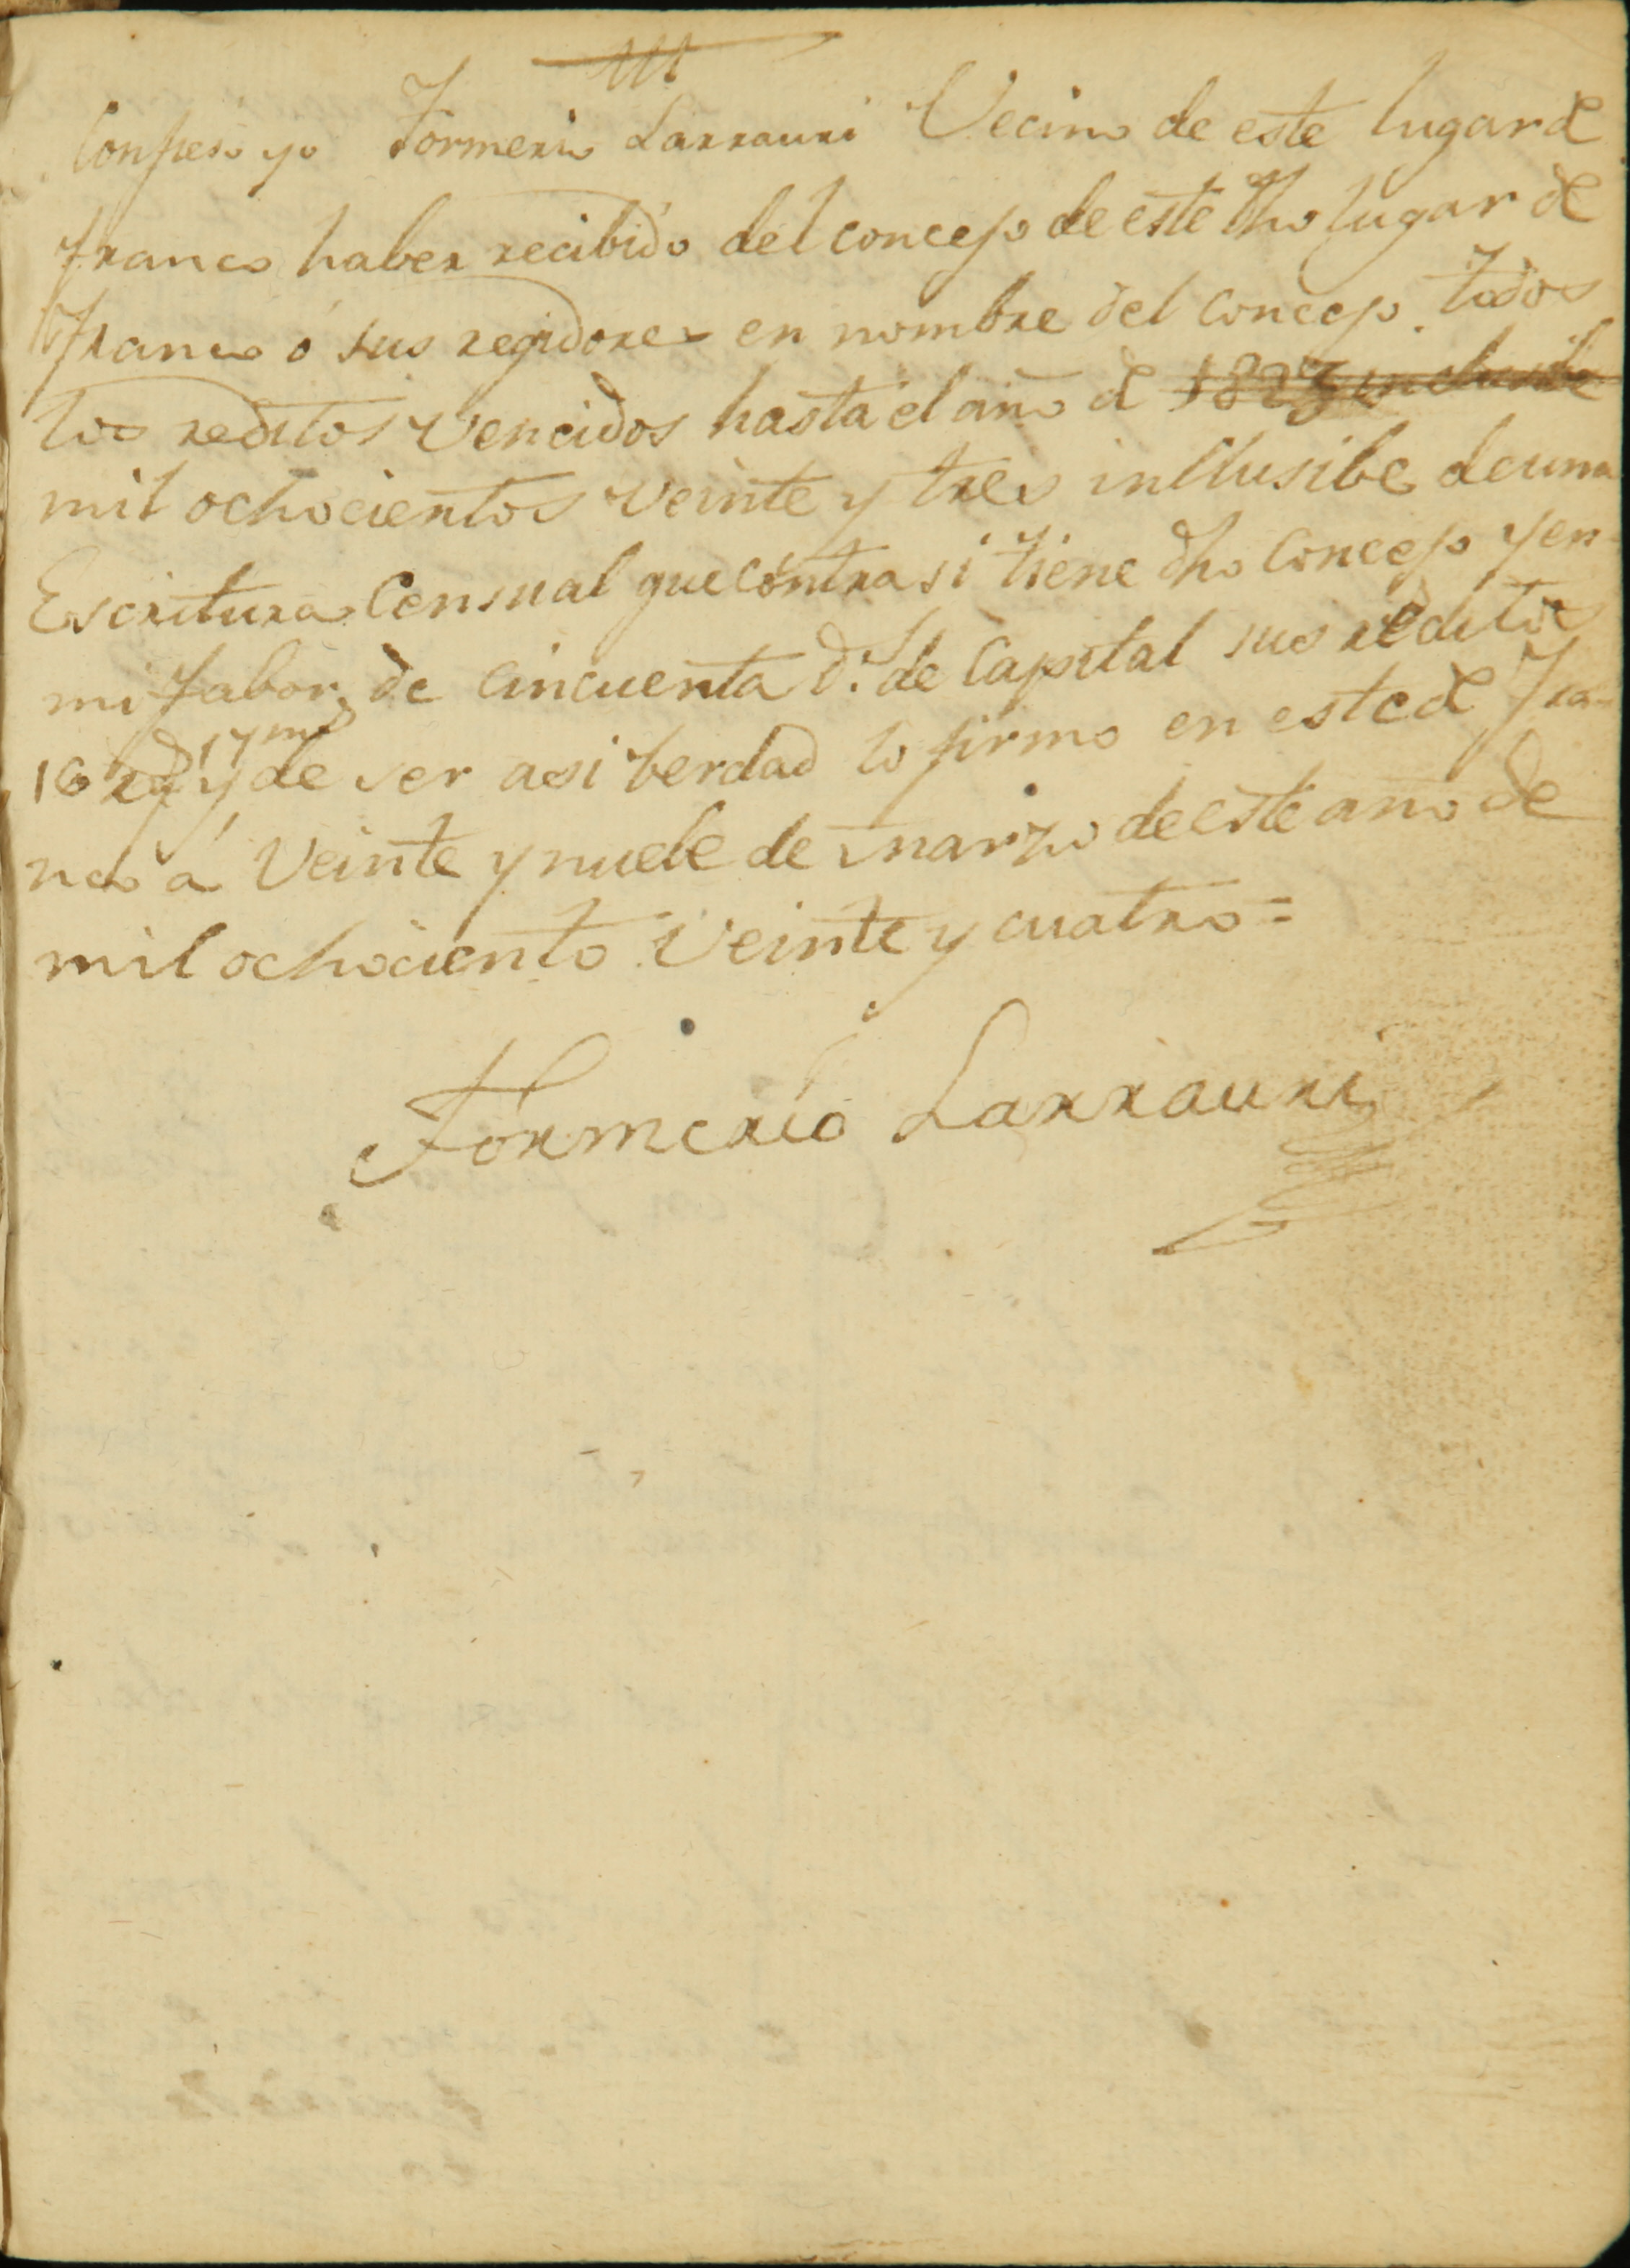 Confieso yo Formerio Larrauri Vecino de este lugar de
franco haber recibido del concejo de este dho lugar de
franco ó sus regidores en nombre del Concejo todos
los reditos vencidos hasta el año de 1823 inclusibe
mil ochocientos veinte y tres inclusibe de una
Escritura Censual que contra si tiene dho Concejo y en
mi fabor de Cincuenta d.s de Capital sus reditos
16 rs 17 ms y de ser asi berdad lo firmo en este de Fra-
nco á Veinte y nuebe de marzo de este año de
mil ochociento Veinte y cuatro =
Formerio Larrauri